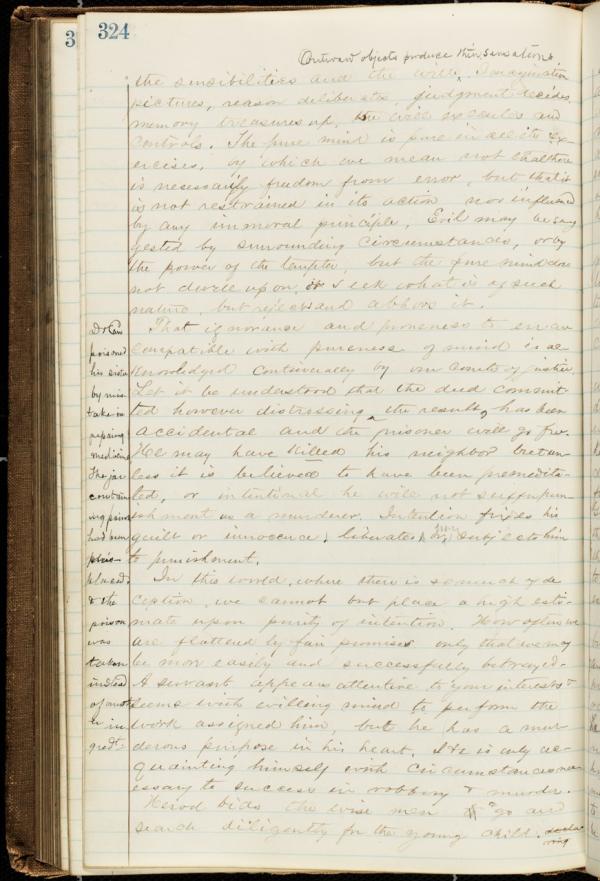 324
Outward objects produce their sensations.
the sensibilities and the will. Imagination
pictures, reason deliberates, judgment decides,
memory treasures up, the will executes and
controls. The pure mind is pure in all its ex-
ercises, by which we mean not that there
is necessarily freedom from error, but that it
is not restrained in its action nor influenced
by any immoral principle. Evil may be sug
gested by surrounding circumstances, or by
the power of the tempter, but the pure mind does
not dwell upon, or seek what is of such
nature, but rejects and abhors it.
That ignorance and proneness to err are
compatible with pureness of mind is ac-
knowledged continually by our Courts of justice
Let it be understood that the deed commit-
ted however distressing the result, has been
accidental and the prisoner will go free.
He may have killed his neighbor but un-
less it is believed to have been premedita-
ted, or intentional he will not suffer pun-
ishment as a murderer. Intention fixes his
guilt or innocence, liberates or subjects him
to punishment.
In this world, where there is so much of de
ception, we cannot but place a high esti-
mate upon purity of intention. How often we
are flattered by fair promises only that we may
be more easily and successfully betrayed.
A servant appears attentive to your interests &
seems with willing mind to perform the
work assigned him, but he has a mur-
derous purpose in his heart. He is only ac-
quainting himself with circumstances nec
essary to success in robbery & murder.
Herod bids the wise men "go and
search diligently for the young child.
poisoned
his sister
by mis
take in
medicine
The jar
contain
ing poison
had been
placed
& the
poison
was
taken
instead
of anoth
er in
gredt.